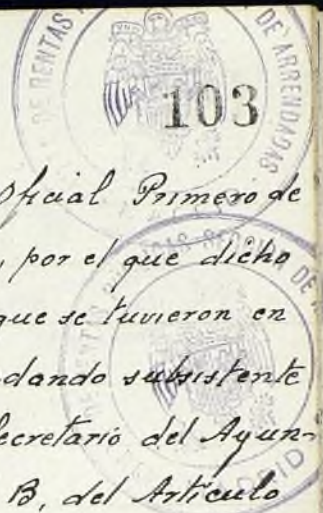 DE RENTAS
DE ARRENDADAS
103
Oficial Primero de
, por el que dicho
que se tuvieron en
dando subsistente
ecretario del Ayun-
B, del Artículo